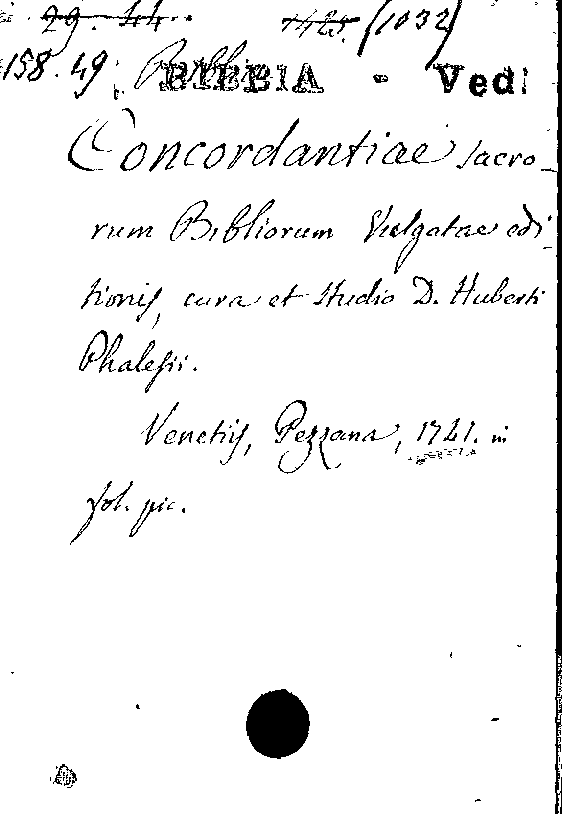 29. 44. 1425. (1032)
158. 49. BIBBIA - Vedi
Concordantiae sacro-
rum Bibliorum Vulgatae edi-
tionis, cura et studio D. Huberti
Phalesii.
Venetiis, Pezzana, 1741. in
fol. pic.